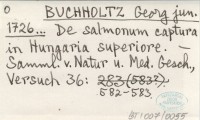 0 BUCHHOLTZ Georg jun.
1726... De salmonum captura
in Hungaria superiore. —
Samml. v. Natur u. Med. Gesch.,
Versuch 36: 283 (583?).
582-583.
BT 1007/0055